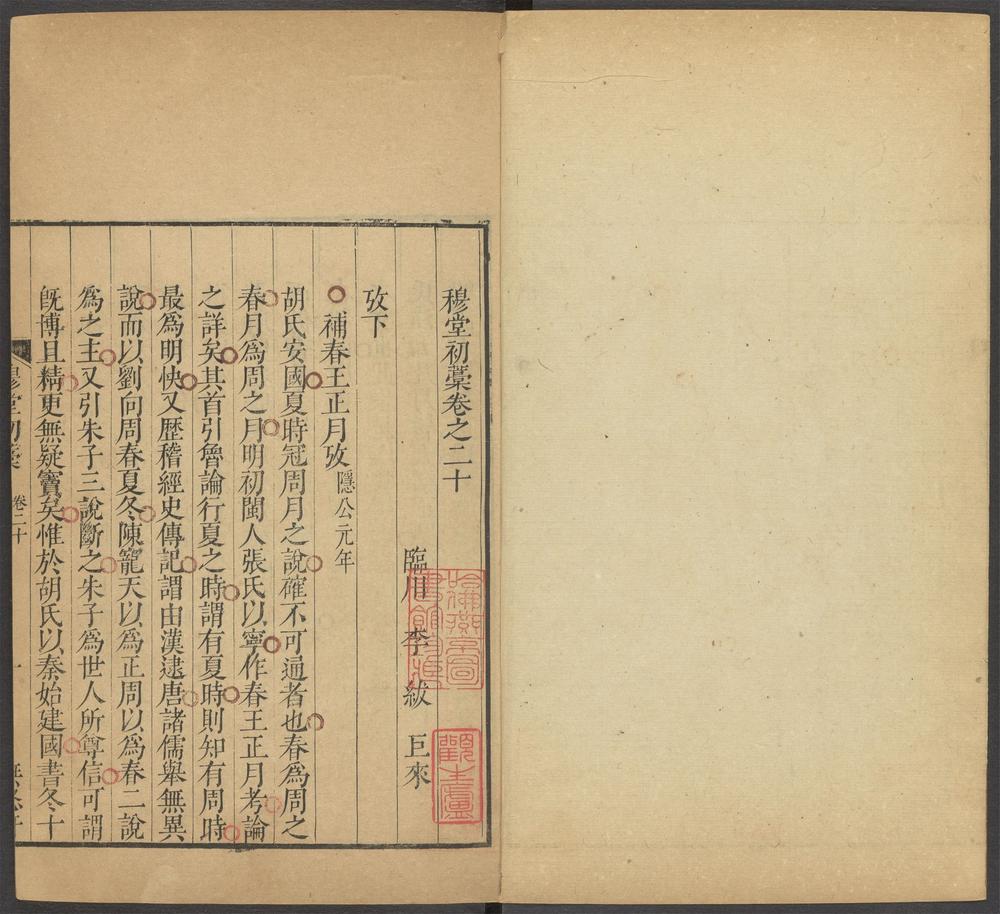 穆堂初藁卷之二十
臨川 李紱 巨來
攷下
補春王正月攷 隱公元年
胡氏安國夏時冠周月之說確不可逼者也春爲周之
春月爲周之月明初閩人張氏以寧作春王正月考論
之詳矣其首引魯論行夏之時謂有夏時則知有周時
最爲明快又歷稽經史傳記謂由漢逮唐諸儒舉無異
說而以劉向周春夏冬陳寵天以爲正周以爲春二說
爲之主又引朱子三說斷之朱子爲世人所尊信可謂
旣博且精更無疑竇矣惟於胡氏以秦始建國書冬十
穆堂初藁 卷二十 一
觀生廬